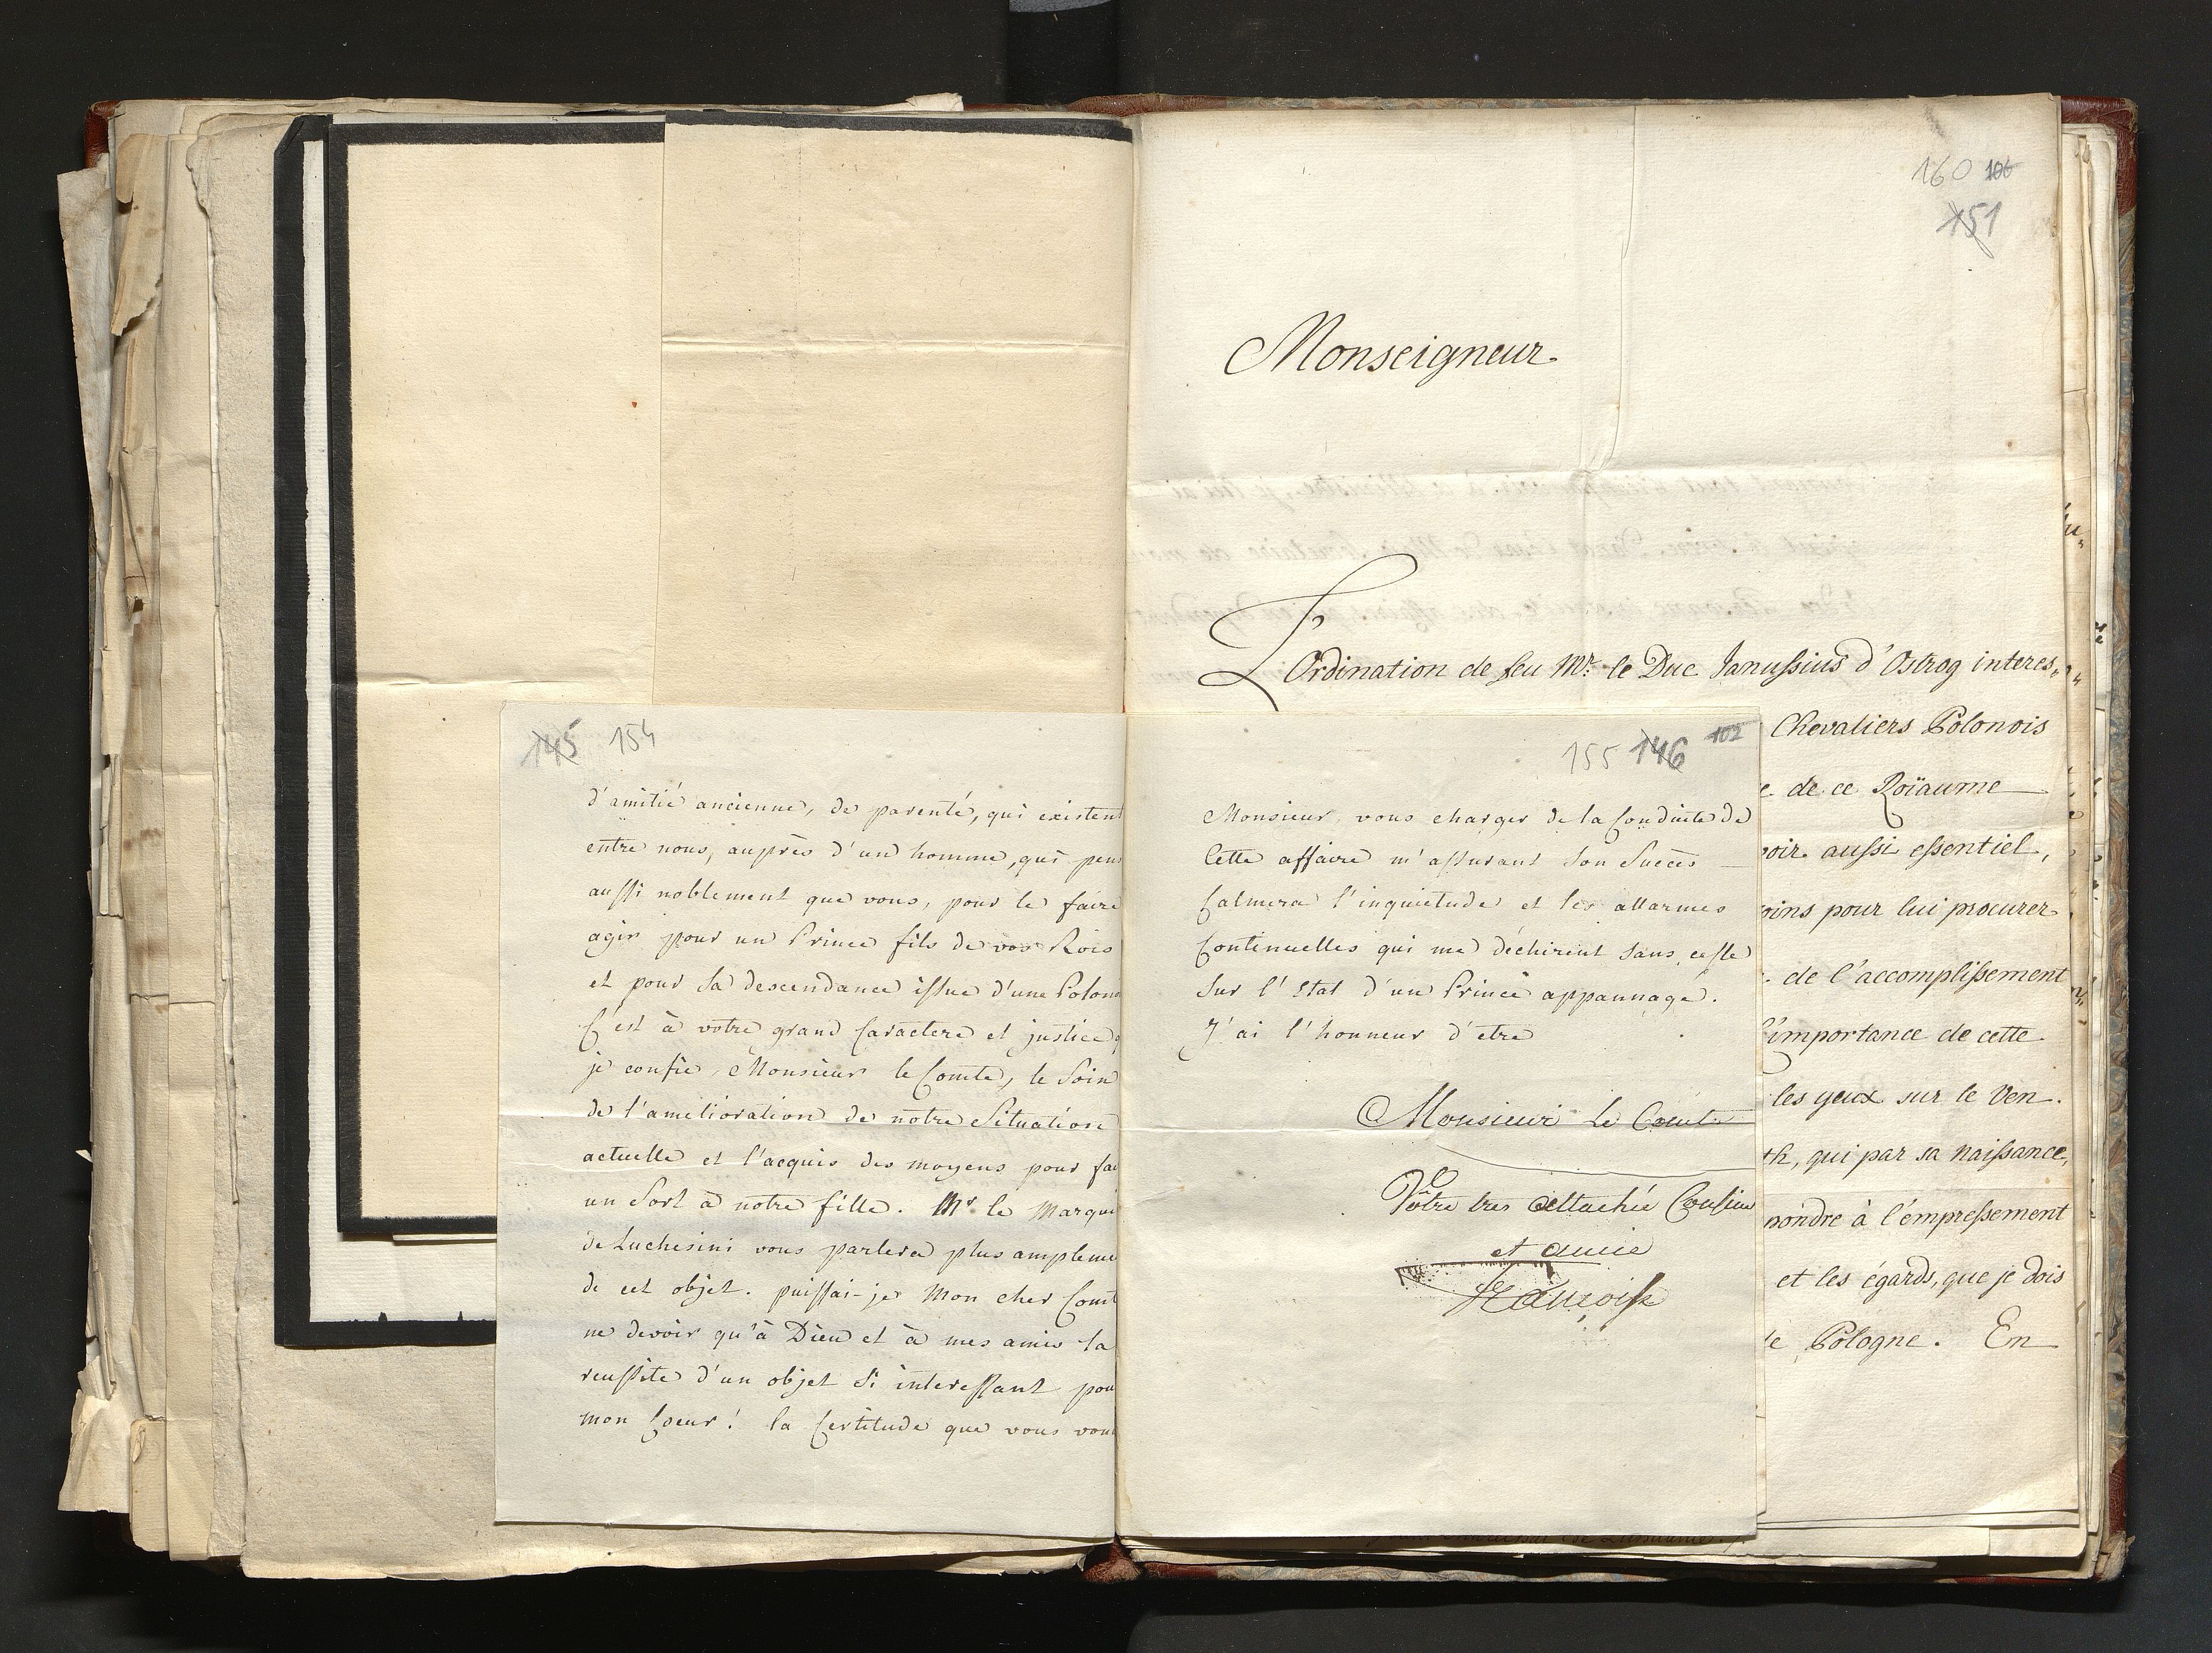 145 154
d'amitié ancienne, de parenté, qui existent
entre nous, auprès d'un homme, qui pens
aussi noblement que vous, pour le faire
agir pour un Prince fils de vos Rois
et pour sa descendance issue d'une Polono
C'est à votre grand Caractere et justice q
je confie, Monsieur le Comte, le Soin
de l'amelioration de notre Situation
actuelle et l'acquis des moyens pour fai
un Sort à notre fille. Mr le Marqui
de Luchesini vous parlera plus ampleme
de cet objet. puissai-je Mon cher Comt
ne devoir qu'à Dieu et à mes amis la
reussite d'un objet Si interessant pou
mon Coeur! la Certitude que vous vou
155 146 102
Monsieur vous charger de la Conduite de
Cette affaire m'assurant Son Succès
Calmera l'inquietude et les allarmes
Continuelles qui me déchirent Sans cesse
Sur l'Etat d'un Prince appannagé.
J'ai l'honneur d'etre
Monsieur Le Comte
Vôtre tres attachée Cousine
et amie
Françoise
160 106
151
Monseigneur
L'Ordination de feu Mr. le Duc Janussius d'Ostrog interes„
Chevaliers Polonois
e de ce Roïaume
voir aussi essentiel,
oins pour lui procurer
de l'accomplissement
l'importance de cette
les yeux sur le Ven.
th, qui par sa naissance,
pondre à l'empressement
et les égards, que je dois
de Pologne. En